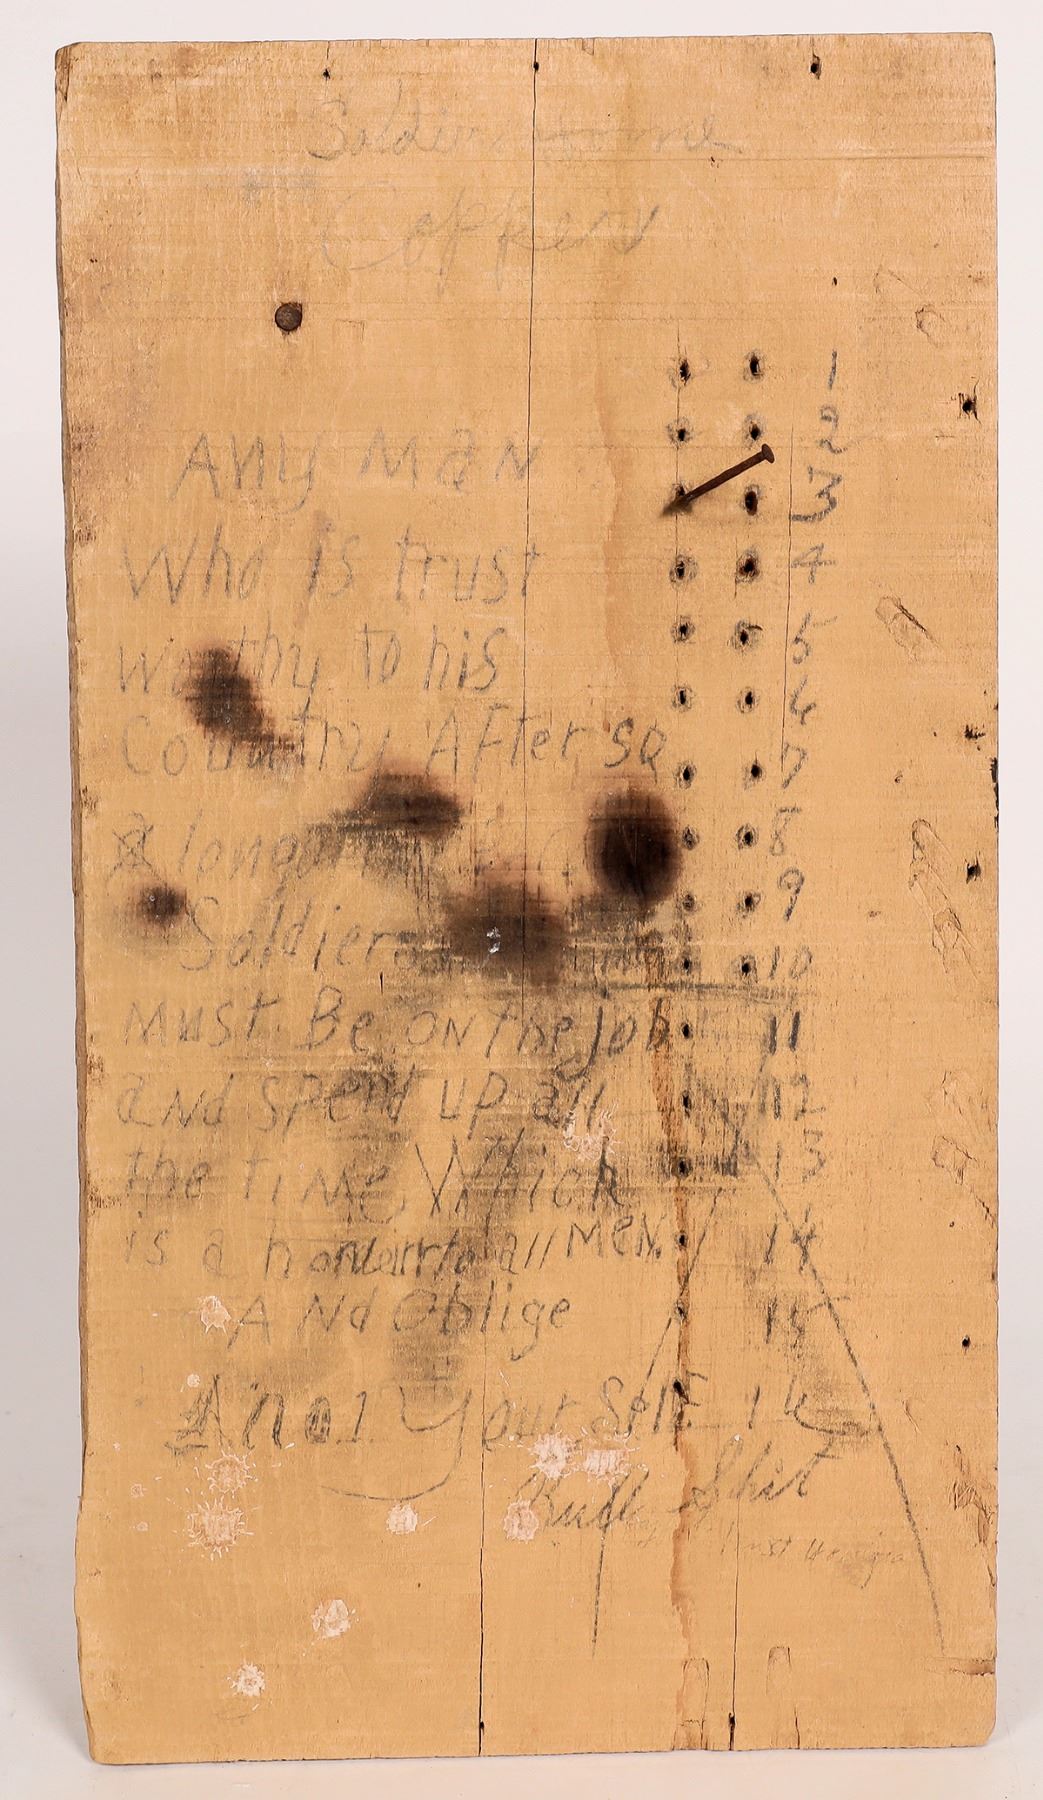 Soldiers Home
Coppers
Any Man
Who is trust
worthy to his
Country After so
a long
Soldiers
must Be on the job
and spend up all
the time Which
is a honor to all MEN.
And Oblige
A no 1 Your Self
Bull Shit
1
2
3
4
5
6
7
8
9
10
11
12
13
14
15
16